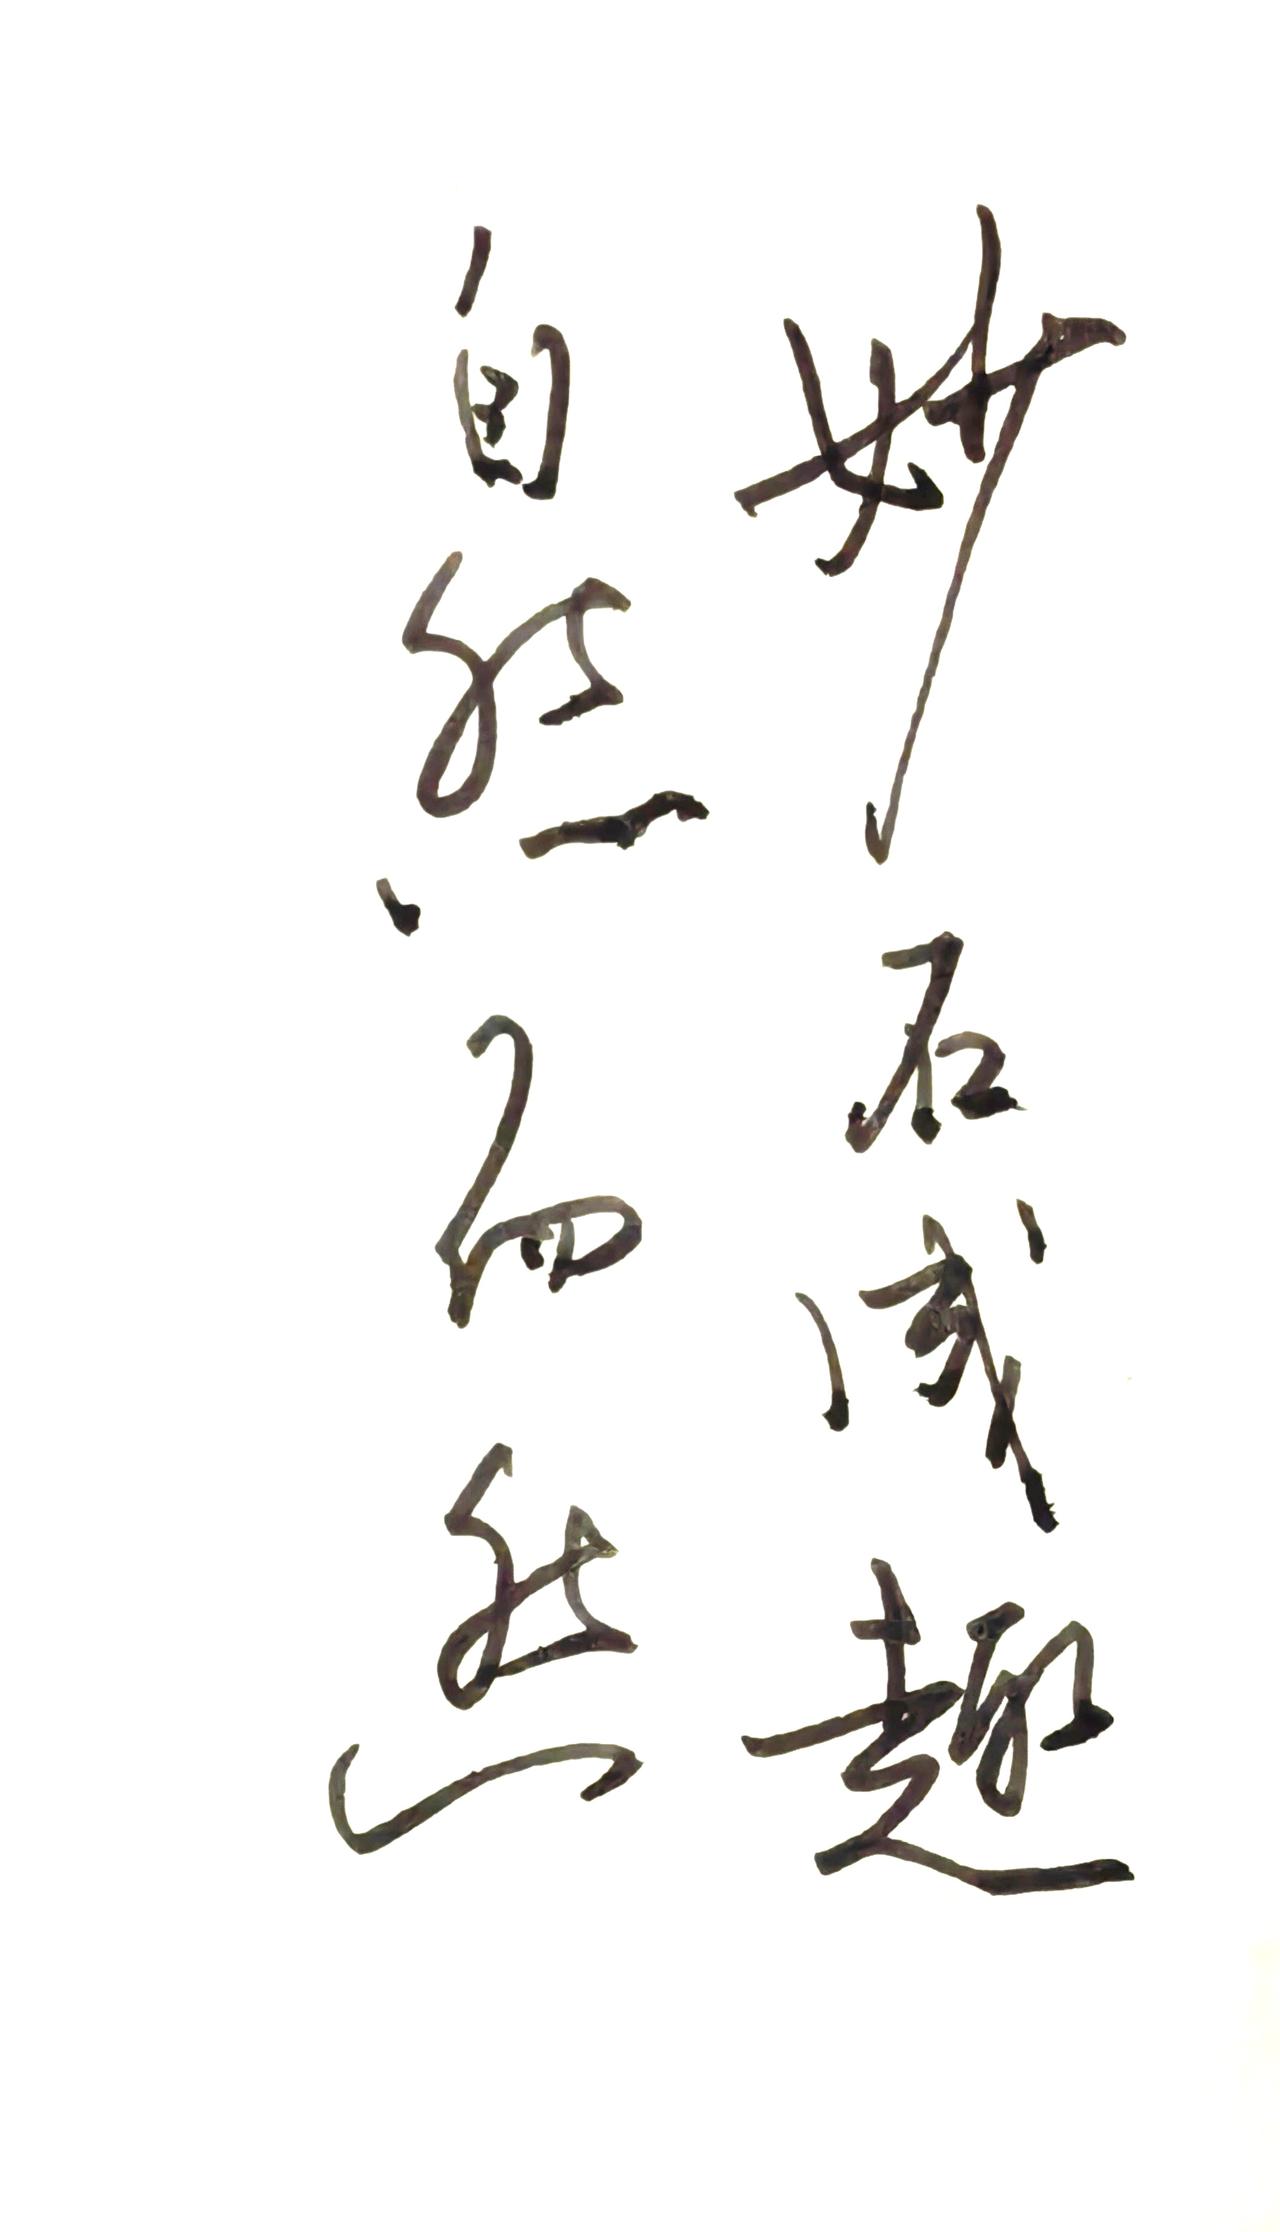 妙石成趣
自然而然